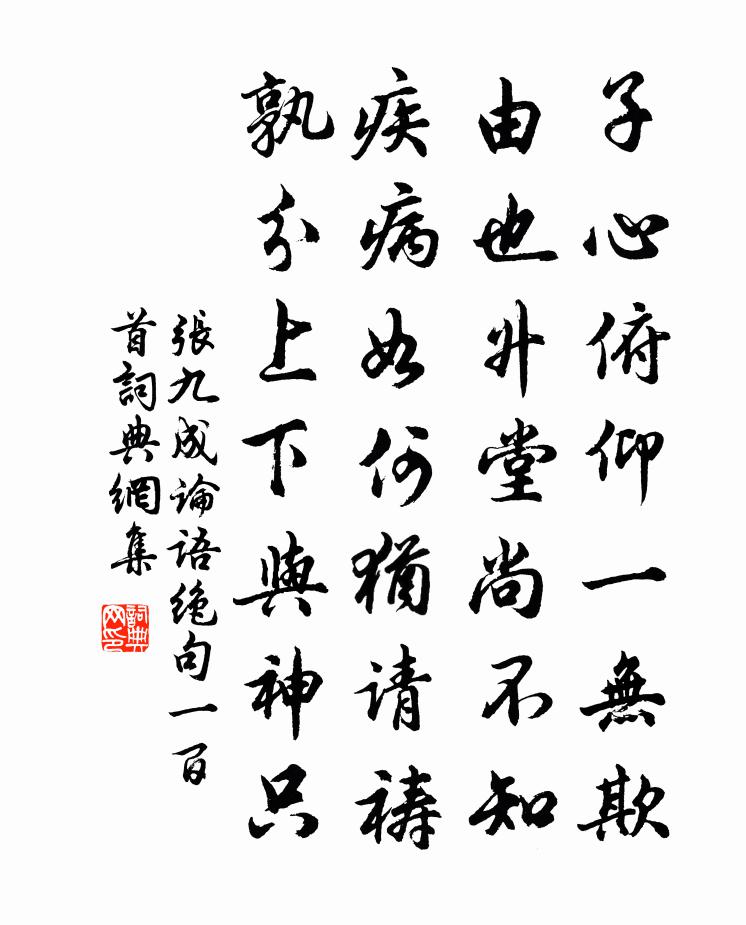 子心俯仰一無欺
由也升堂尚不知
疾病如何猶请禱
孰分上下與神只
張九成論語絶句一百
首詞典網集
詞典
网印